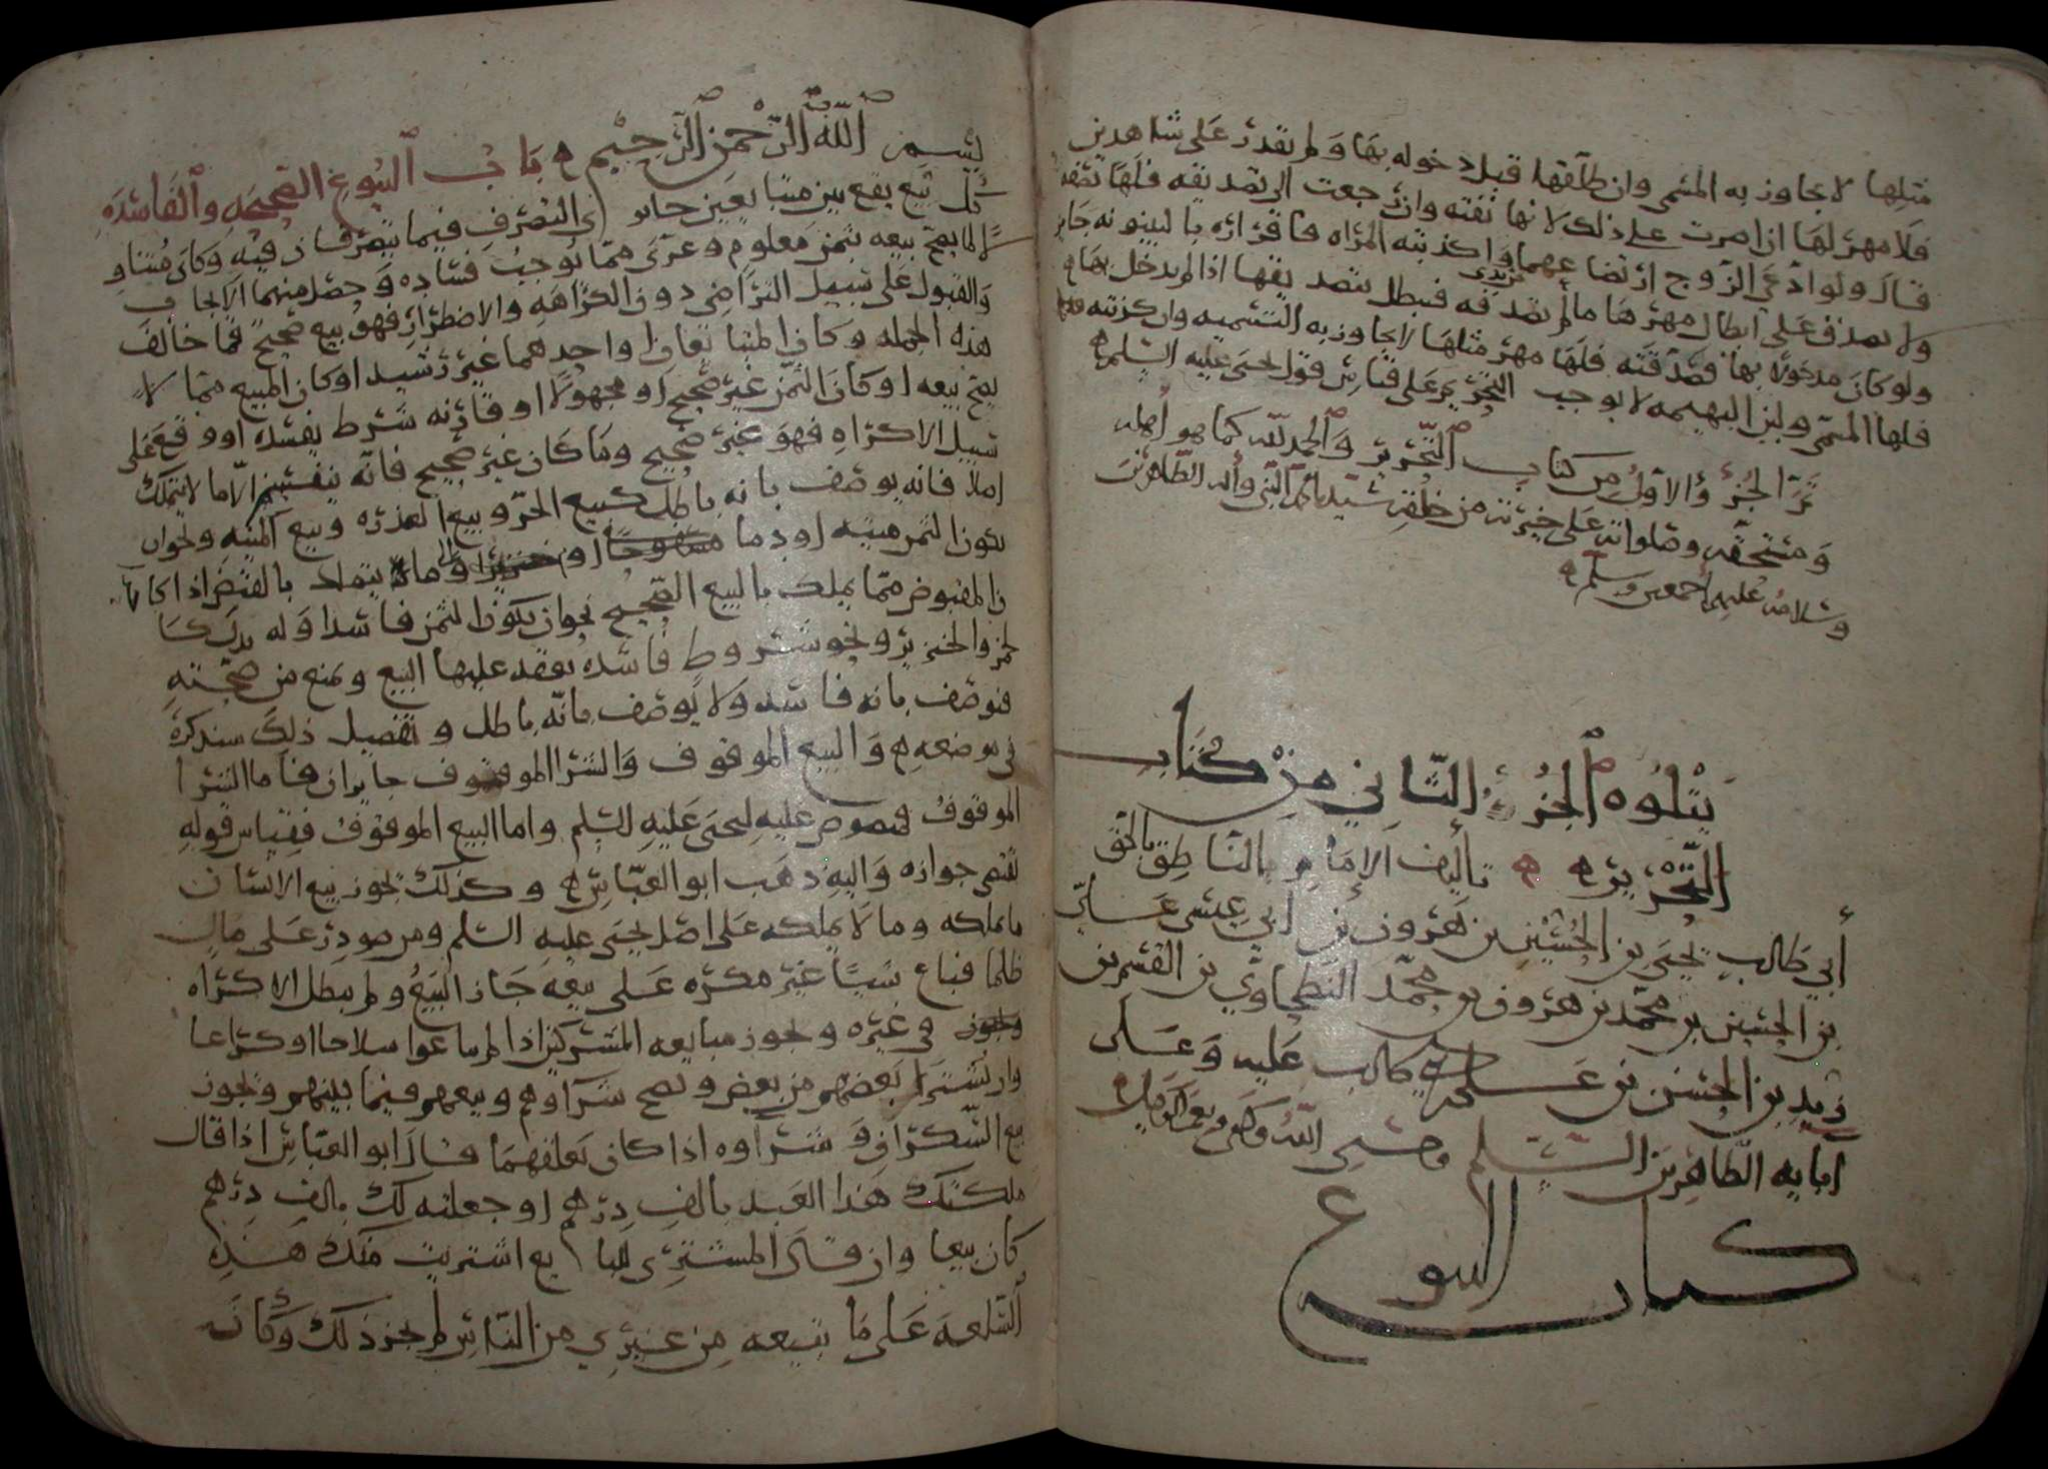 مثلها لا يجاوز به المسمى وان طلقها قبل دخوله بها ولم تقدر على شاهدين
فلا مهر لها اذا اصرت على ذلك لانها نفته وان رجعت الى تصديقه فلها نصفه
قال ولو ادعى الزوج ارتضاعهما واكذبته المراه فاقراره بالبينونه جايز
ولا يصدق على ابطال مهرها ما لم تصدقه فيبطل بتصديقها اذا لم يدخل بها ه
ولو كان مدخولا بها فصدقته فلها مهر مثلها لا يجاوز به التسميه وان كذبته
فلها المسمى ولبن البهيمه لا يوجب التحريم على قياس قول يحيى عليه السلم ه
تم الجزء الاول من كتاب التحرير والحمد لله كما هو اهله
ومستحقه وصلواته على خيرته من خلقه سيدنا محمد النبي واله الطاهرين
وسلامه عليهم اجمعين وسلم ه
يتلوه الجزء الثاني من كتاب
التحرير ه ه تأليف الامام الناطق بالحق
أبي طالب يحيى بن الحسين بن هرون بن
بن الحسين بن محمد بن هرون بن محمد البطحاوي بن القسم بن
زيد بن الحسن بن على ابي طالب عليه وعلى
آبايه الطاهرين السلم وحسبي الله وكفى ونعم الوكيل
كتاب البيوع
بسم الله الرحمن الرحيم ه باب البيوع الصحيحه والفاسده
كل بيع يقع بين متبايعين جايزي التصرف فيما يتصرفان فيه وكان متناو
لا لما يصح بيعه بثمن معلوم وعري مما يوجب فساده وحصل منهما الايجاب
والقبول على سبيل التراضي دون الكراهه والاضطرار فهو بيع صحيح فما خالف
هذه الجمله وكان المتبايعان او احدهما غير رشيد او كان المبيع مما لا
يصح بيعه او كان الثمن غير صحيح او مجهولا او قارنه شرط يفسده او وقع على
سبيل الاكراه فهو غير صحيح وما كان غير صحيح فانه ينقسم الا ما لا يتملك
اصلا فانه يوصف بانه باطل كبيع الحر وبيع العذره وبيع الميته ونحو ان
يكون الثمن ميته او دما يتملك بالقبض اذا كا
ن المقبوض مما يملك بالبيع الصحيح نحو ان يكون الثمن فاسدا وله بدل كا
لخمر والخنزير ونحو شروط فاسده يعقد عليها البيع وتمنع من صحته
فيوصف بانه فاسد ولا يوصف بانه باطل وتفصيل ذلك سنذكره
في موضعه ه والبيع الموقوف والشرا الموقوف جايزان فاما الشرا
الموقوف فمنصوص عليه ليحيى عليه السلم واما البيع الموقوف فقياس قوله
يقتضي جوازه واليه ذهب ابو العباس ه وكذلك يجوز بيع الانسان
ما يملكه وما لا يملكه على اصل يحيى عليه السلم ومن صودر على مال
ظلما فباع شيا غير مكره على بيعه جاز البيع ولم يبطل الاكراه
في غيره ويجوز مبايعه المشركين اذا لم يباعوا سلاحا او كراعا
وان يشترى بعضهم من بعض ويصح شراوهم وبيعهم فيما بينهم ويجوز
بيع السكران وشراوه اذا كان يعقلهما قال ابو العباس اذا قال
ملكتك هذا العبد بالف درهم او جعلته لك بالف درهم
كان بيعا وان قال المشتري للبايع اشتريت منك هذه
السلعه على ما تبيعه من غيري من الناس لم يجز ذلك وكان